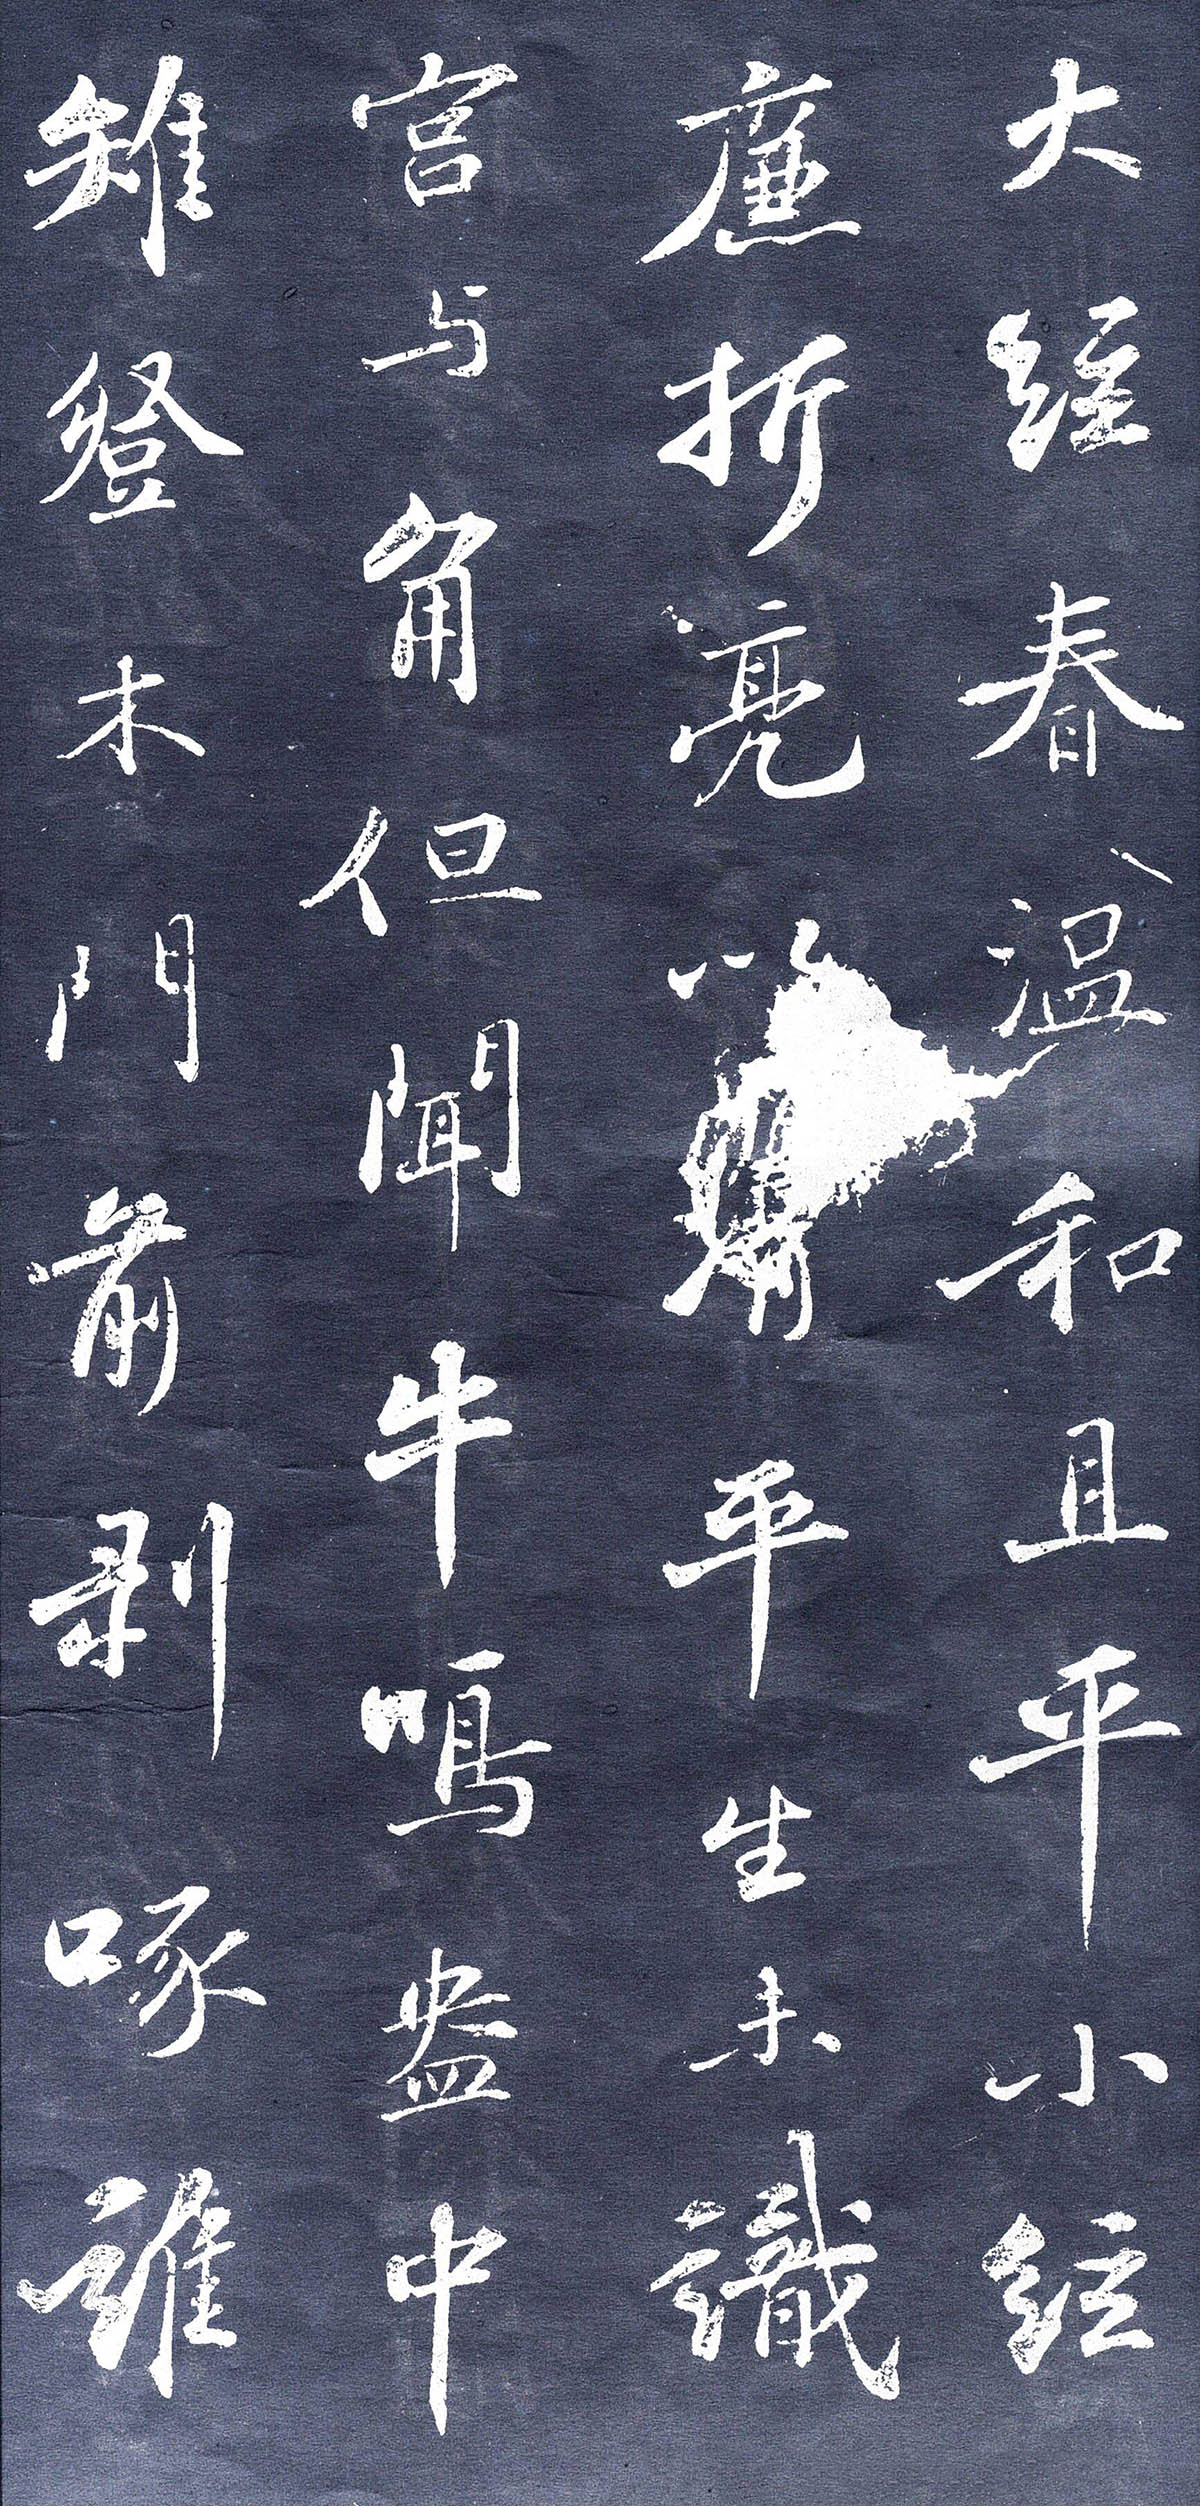 大絃春温和且平小絃
廉折亮以清平生未識
宫与角但聞牛鳴盎中
雉登木門前剥啄誰